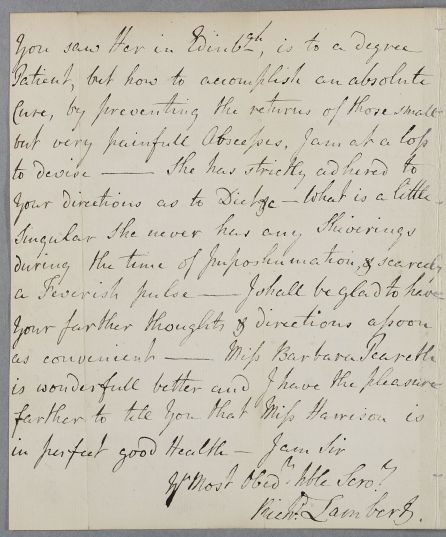 You saw Her in Edinbgh, is to a degree
Patient, but how to accomplish an absolute
Cure, by preventing the returns of those small
but very painfull Abscesses, I am at a loss
to devise — She has strictly adhered to
Your directions as to Diet &c — What is a little
Singular She never has any Shiverings
during the time of Imposthumation, & scarcely
a Feverish pulse — I shall be glad to have
Your farther thoughts & directions assoon
as convenient — Miss Barbara Peareth
is wonderfull better and I have the pleasure
farther to tell You that Miss Harrison is
in perfect good Health — I am Sir
Yr Most Obedt hble Servt
Richd Lambert.